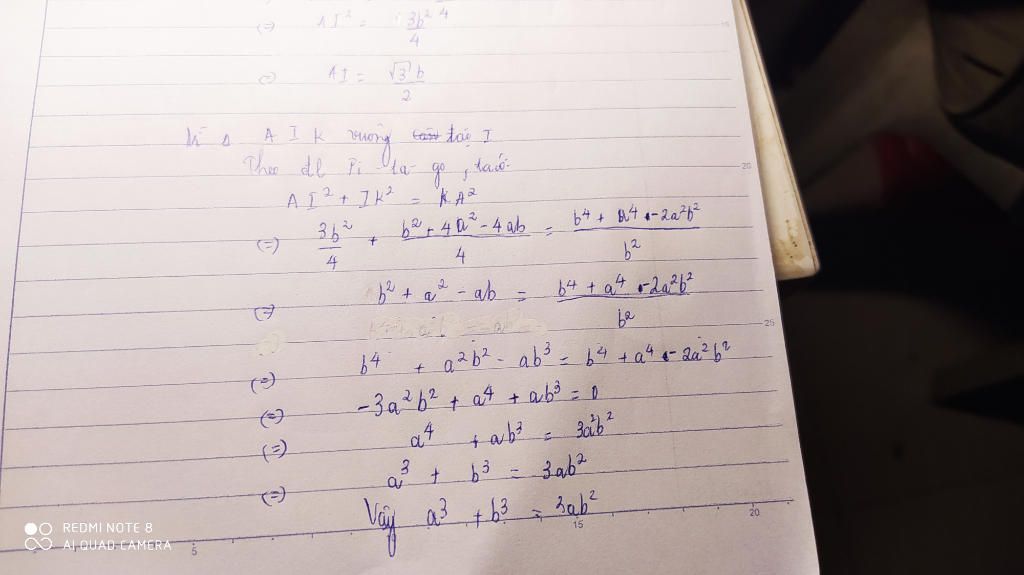 (=) AI² = 3b² 4 / 4
(=) AI = √3 b / 2
Δ A I K vuông tại I
Theo đl Pi-ta-go, ta có:
AI² + IK² = KA²
(=) 3b²/4 + (b² + 4a² - 4ab)/4 = (b⁴ + a⁴ - 2a²b²)/b²
(=) b² + a² - ab = (b⁴ + a⁴ - 2a²b²)/b²
(=) b⁴ + a²b² - ab³ = b⁴ + a⁴ - 2a²b²
(=) -3a²b² + a⁴ + ab³ = 0
(=) a⁴ + ab³ = 3a²b²
(=) a³ + b³ = 3ab²
Vậy a³ + b³ = 3ab²
20
25
5
15
20
REDMI NOTE 8
AI QUAD CAMERA